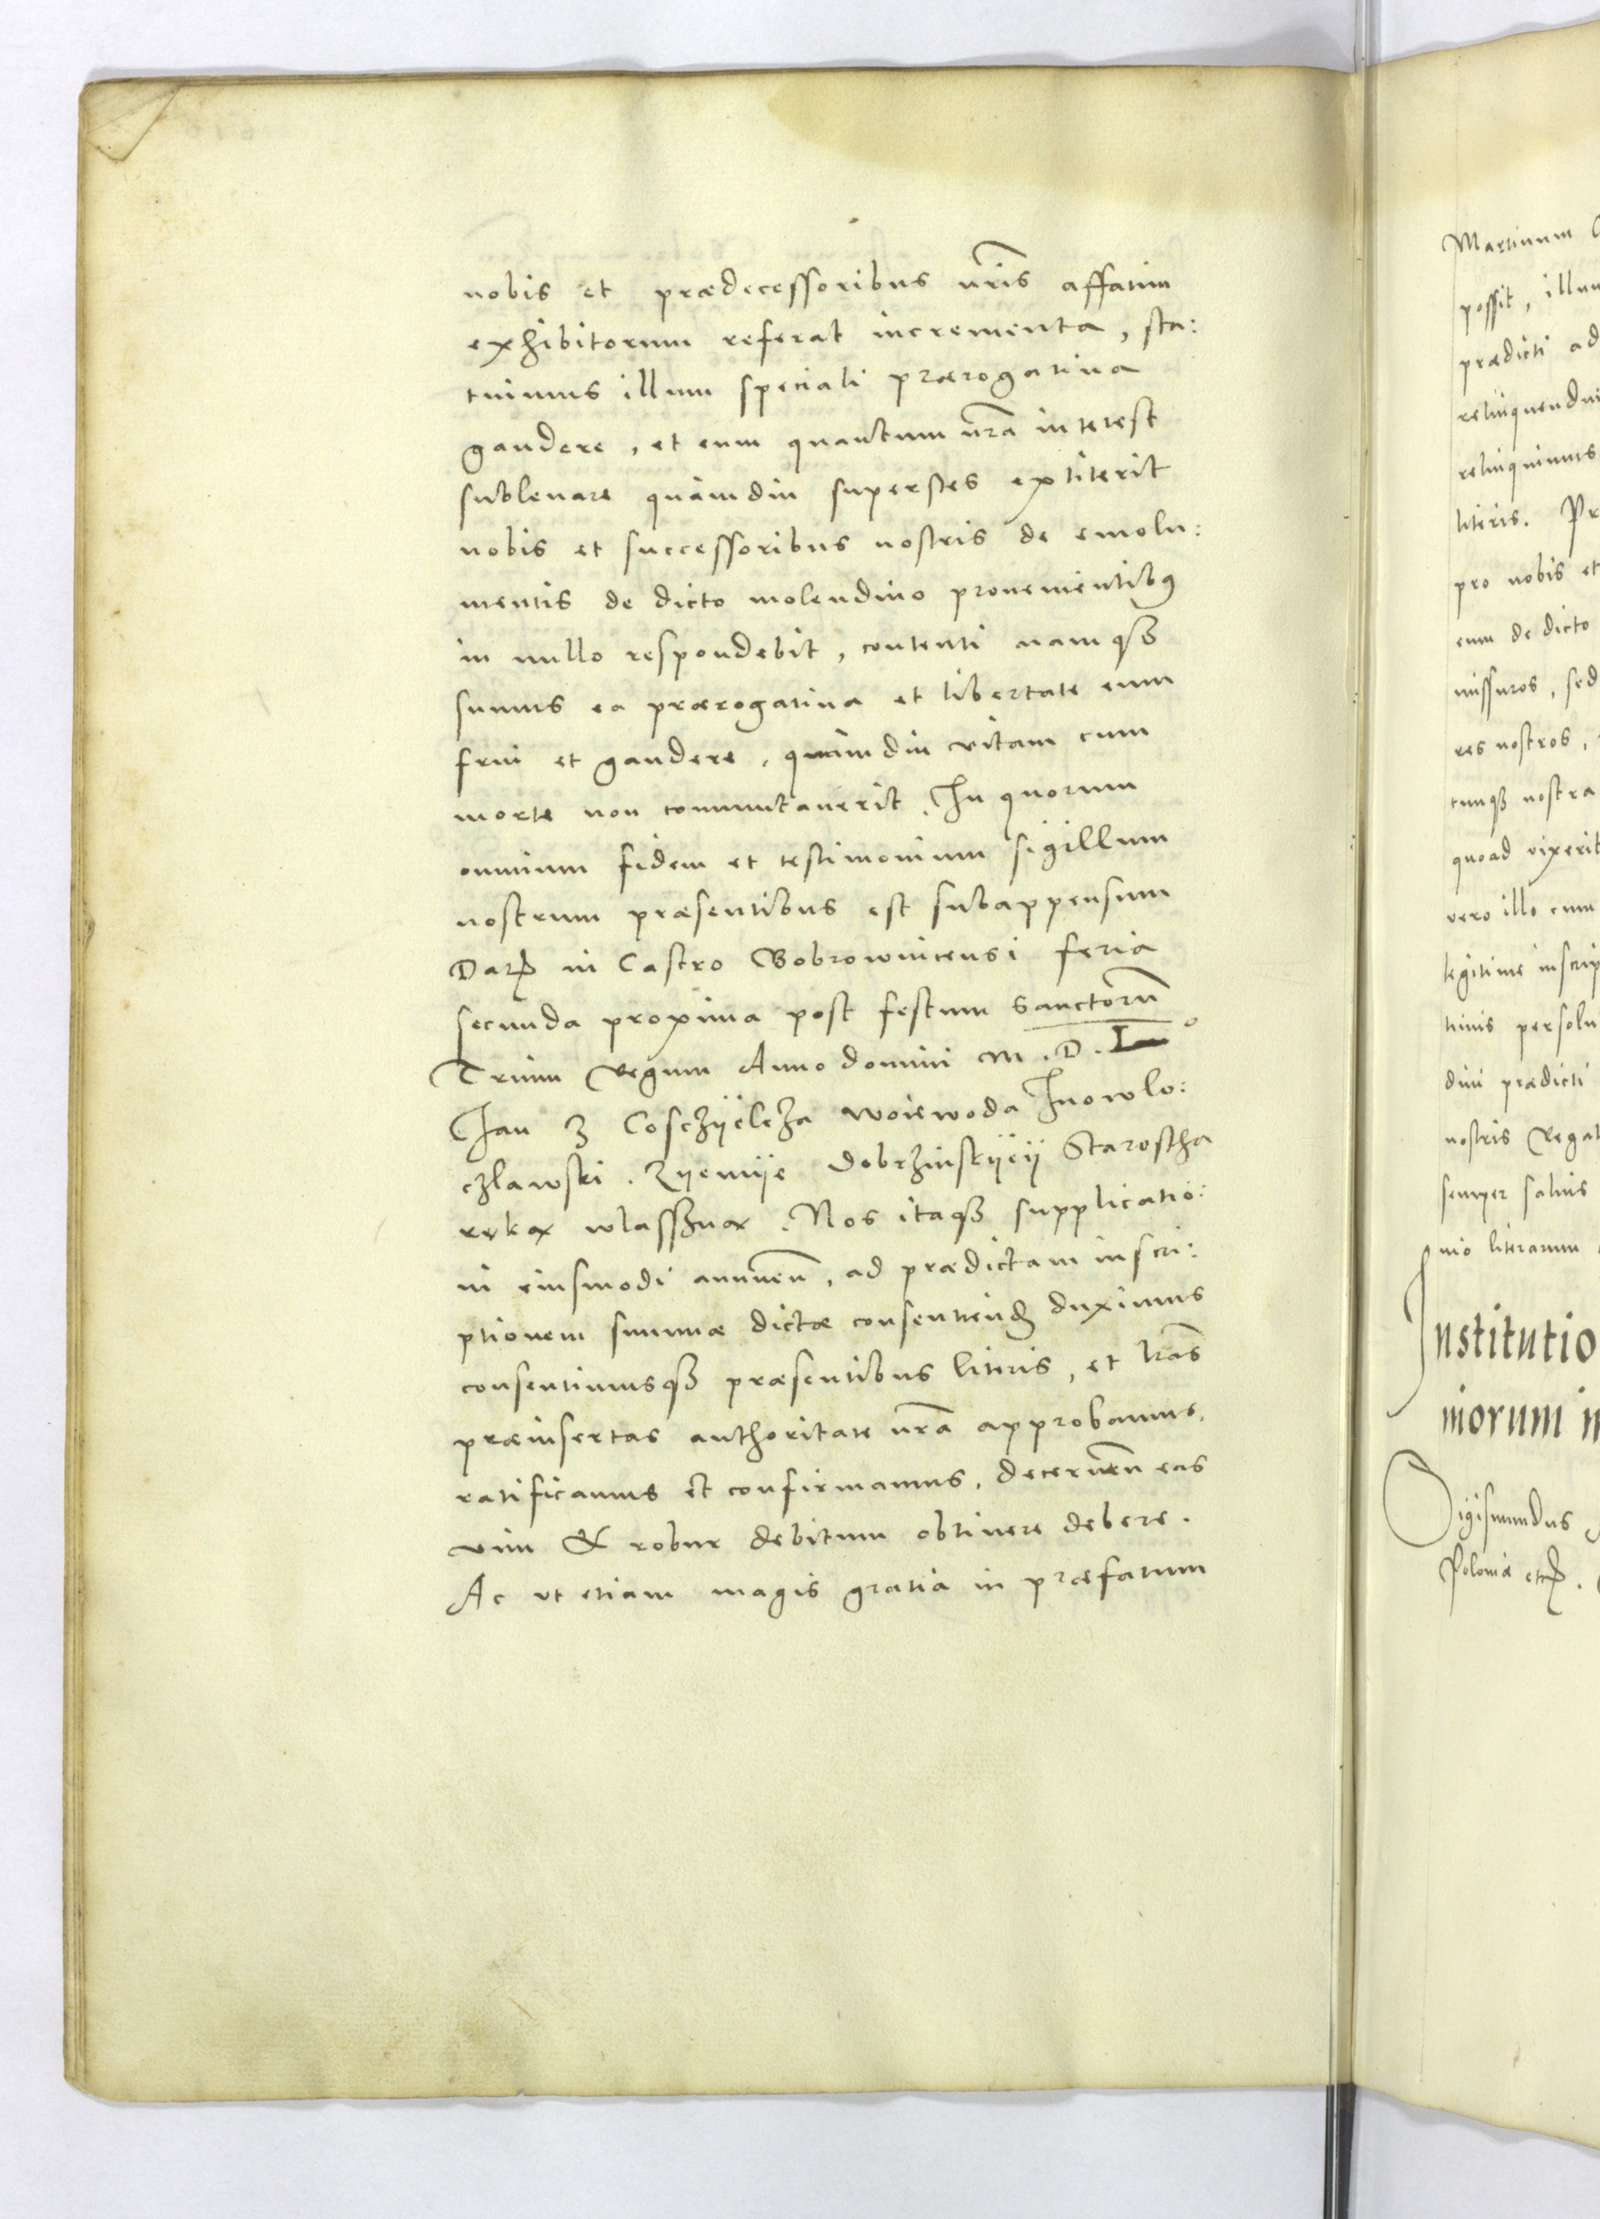 nobis et prædecessoribus nris affatim
exhibitorum referat incrementa, sta:
tuimus illum speciali prærogatiua
gaudere, et eum quantum nra interest
subleuare quàmdiu superstes extiterit
nobis et successoribus nostris de emolu:
mentis de dicto molendino prouenientibus
in nullo respondebit, contenti namq3
sumus ea prærogatiua et libertate eum
frui et gaudere, quàmdiu vitam cum
morte non commutauerit. In quorum
omnium fidem et testimonium sigillum
nostrum præsentibus est subappensum
Dat in Castro Bobrownicensi feria
secunda proxima post festum Sanctoru
Trium Regum Anno domini M.D.L°
Jan z Cosczÿelcza woiewoda Inowlo:
czlawski. Zÿemÿe Dobrzinskÿeÿ Staroscha
ręką wlassną. Nos itaq3 supplicatio:
ni eiusmodi annuen, ad prædictam inscri:
ptionem summæ dictæ consentiend duximus
consentimusq3 præsentibus literis, et lras
præinsertas authoritate nra approbamus,
ratificamus et confirmamus, decernen eas
vim & robur debitum obtinere debere.
Ac vt etiam magis gratia in præfatum
Martinum
possit, illum
prædicti ad
relinquendu
relinquimus
literis. Pr
pro nobis et
eum de dicto
missuros, sed
res nostros,
cunq3 nostra
quoad vixerit
vero illo cum
legitime inscrip
timis persolu
diui prædicti
nostris Regal
semper saluis
nio literarum
Institutio
morum in
Sigismundus
Poloniæ etc.